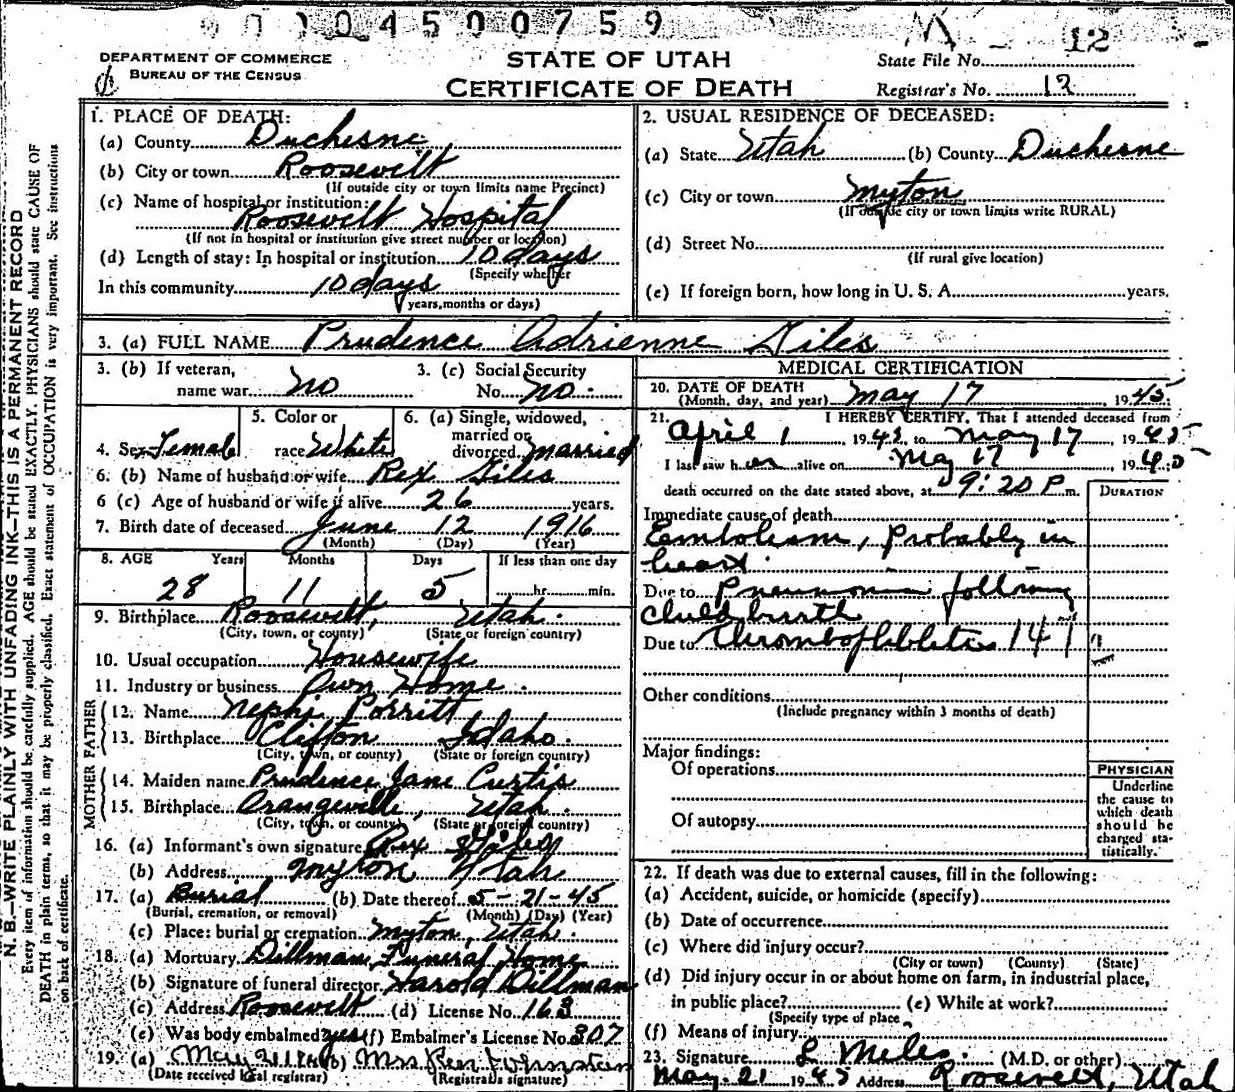 0 0 1 0 4 5 0 0 7 5 9
12
DEPARTMENT OF COMMERCE
BUREAU OF THE CENSUS
STATE OF UTAH
CERTIFICATE OF DEATH
State File No.
Registrar's No. 12
1. PLACE OF DEATH:
(a) County Duchesne
(b) City or town Roosevelt
(If outside city or town limits name Precinct)
(c) Name of hospital or institution:
Roosevelt Hospital
(If not in hospital or institution give street number or location)
(d) Length of stay: In hospital or institution 10 days
(Specify whether
In this community 10 days
years, months or days)
2. USUAL RESIDENCE OF DECEASED:
(a) State Utah (b) County Duchesne
(c) City or town Myton
(If outside city or town limits write RURAL)
(d) Street No.
(If rural give location)
(e) If foreign born, how long in U. S. A. years.
3. (a) FULL NAME Prudence Adrienne Giles
3. (b) If veteran,
name war no
3. (c) Social Security
No. no.
4. Sex Female
5. Color or
race White
6. (a) Single, widowed,
married or
divorced. married
6. (b) Name of husband or wife Rex Giles
6 (c) Age of husband or wife if alive 26 years.
7. Birth date of deceased June 12 1916
(Month) (Day) (Year)
8. AGE Years Months Days If less than one day
28 11 5 hr. min.
9. Birthplace Roosevelt, Utah.
(City, town, or county) (State or foreign country)
10. Usual occupation Housewife
11. Industry or business Own Home.
FATHER
12. Name Nephi Porritt
13. Birthplace Clifton Idaho.
(City, town, or county) (State or foreign country)
MOTHER
14. Maiden name Prudence Jane Curtis
15. Birthplace Orangeville, Utah.
(City, town, or county) (State or foreign country)
16. (a) Informant's own signature Rex Giles
(b) Address Myton Utah
17. (a) Burial (b) Date thereof 5-21-45
(Burial, cremation, or removal) (Month) (Day) (Year)
(c) Place: burial or cremation Myton, Utah.
18. (a) Mortuary Dillman Funeral Home
(b) Signature of funeral director Harold Dillman
(c) Address Roosevelt (d) License No. 163
(e) Was body embalmed yes (f) Embalmer's License No. 307
19. (a) May 21 (b) Mrs. Johnston
(Date received local registrar) (Registrar's signature)
MEDICAL CERTIFICATION
20. DATE OF DEATH
(Month, day, and year) May 17, 1945.
21. I HEREBY CERTIFY, That I attended deceased from
April 1 1945, to May 17, 1945
I last saw her alive on May 17 1945
death occurred on the date stated above, at 9:20 P m.
DURATION
Immediate cause of death
Embolism, Probably in
heart.
Due to Pneumonia following
childbirth
Due to Thrombophlebitis 141
Other conditions
(Include pregnancy within 3 months of death)
Major findings:
Of operations
Of autopsy
PHYSICIAN
Underline
the cause to
which death
should be
charged sta-
tistically.
22. If death was due to external causes, fill in the following:
(a) Accident, suicide, or homicide (specify)
(b) Date of occurrence
(c) Where did injury occur?
(City or town) (County) (State)
(d) Did injury occur in or about home on farm, in industrial place,
in public place? (e) While at work?
(Specify type of place
(f) Means of injury
23. Signature L Miles. (M.D. or other)
May. 21 1945 Address Roosevelt, Utah
N. B.—WRITE PLAINLY WITH UNFADING INK—THIS IS A PERMANENT RECORD
Every item of information should be carefully supplied. AGE should be stated EXACTLY. PHYSICIANS should state CAUSE OF
DEATH in plain terms, so that it may be properly classified. Exact statement of OCCUPATION is very important. See instructions
on back of certificate.